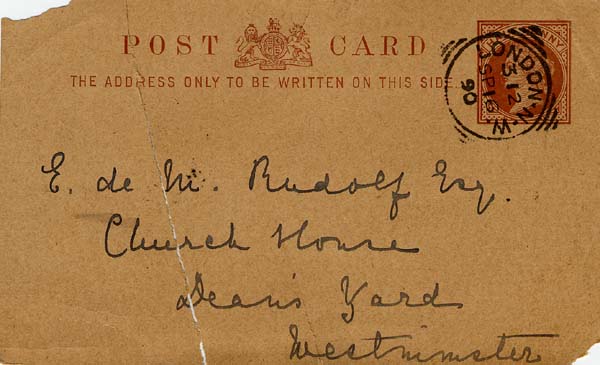 POST CARD
THE ADDRESS ONLY TO BE WRITTEN ON THIS SIDE.
LONDON·N.W.
3
SP 16
90
E. de M. Rudolf Esq.
Church House
Dean's Yard
Westminster